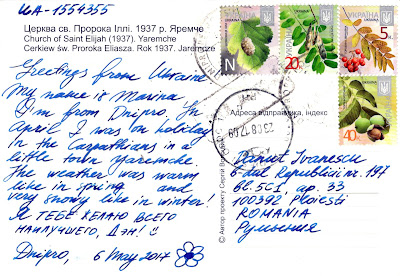 UA-1554355
Церква св. Пророка Іллі. 1937 р. Яремче
Church of Saint Elijah (1937). Yaremche
Cerkiew św. Proroka Eliasza. Rok 1937. Jaremcze
Greetings from Ukraine
My name is Marina
I'm from Dnipro. In
April I was on holiday
In the Carpathians in a
little town Yaremcke.
The weather was warm
like in spring and
very snowy like in winter!
Я ТЕБЕ ЖЕЛАЮ ВСЕГО
НАИЛУЧШЕГО, ДЭН! ☺
Dnipro, 6 May 2017
УКРАЇНА
N
УКРАЇНА
20
УКРАЇНА
5
УКРАЇНА
40
Адреса відправника, індекс
© Автор проекту Сергій
Danut Ivanescu
b-dul Republicii nr. 197
bl. 5C1, ap. 33
100392 Ploiesti
ROMANIA
Румыния